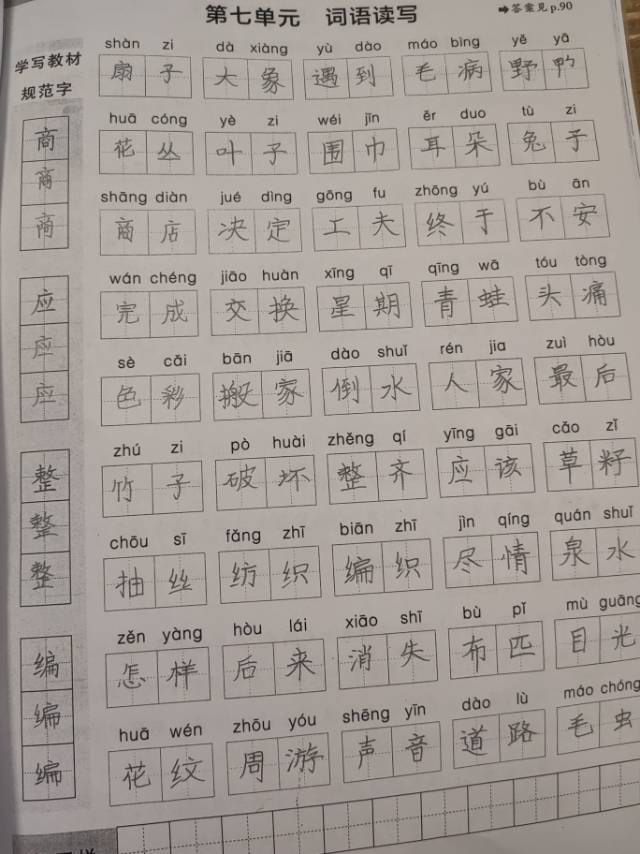 第七单元 词语读写 ➡答案见p.90
学写教材
规范字
商
商
商
应
应
应
整
整
整
编
编
编
shàn zi dà xiàng yù dào máo bìng yě yā
扇子 大象 遇到 毛病 野鸭
huā cóng yè zi wéi jīn ěr duo tù zi
花丛 叶子 围巾 耳朵 兔子
shāng diàn jué dìng gōng fu zhōng yú bù ān
商店 决定 工夫 终于 不安
wán chéng jiāo huàn xīng qī qīng wā tóu tòng
完成 交换 星期 青蛙 头痛
sè cǎi bān jiā dào shuǐ rén jia zuì hòu
色彩 搬家 倒水 人家 最后
zhú zi pò huài zhěng qí yīng gāi cǎo zǐ
竹子 破坏 整齐 应该 草籽
chōu sī fǎng zhī biān zhī jìn qíng quán shuǐ
抽丝 纺织 编织 尽情 泉水
zěn yàng hòu lái xiāo shī bù pǐ mù guāng
怎样 后来 消失 布匹 目光
huā wén zhōu yóu shēng yīn dào lù máo chóng
花纹 周游 声音 道路 毛虫